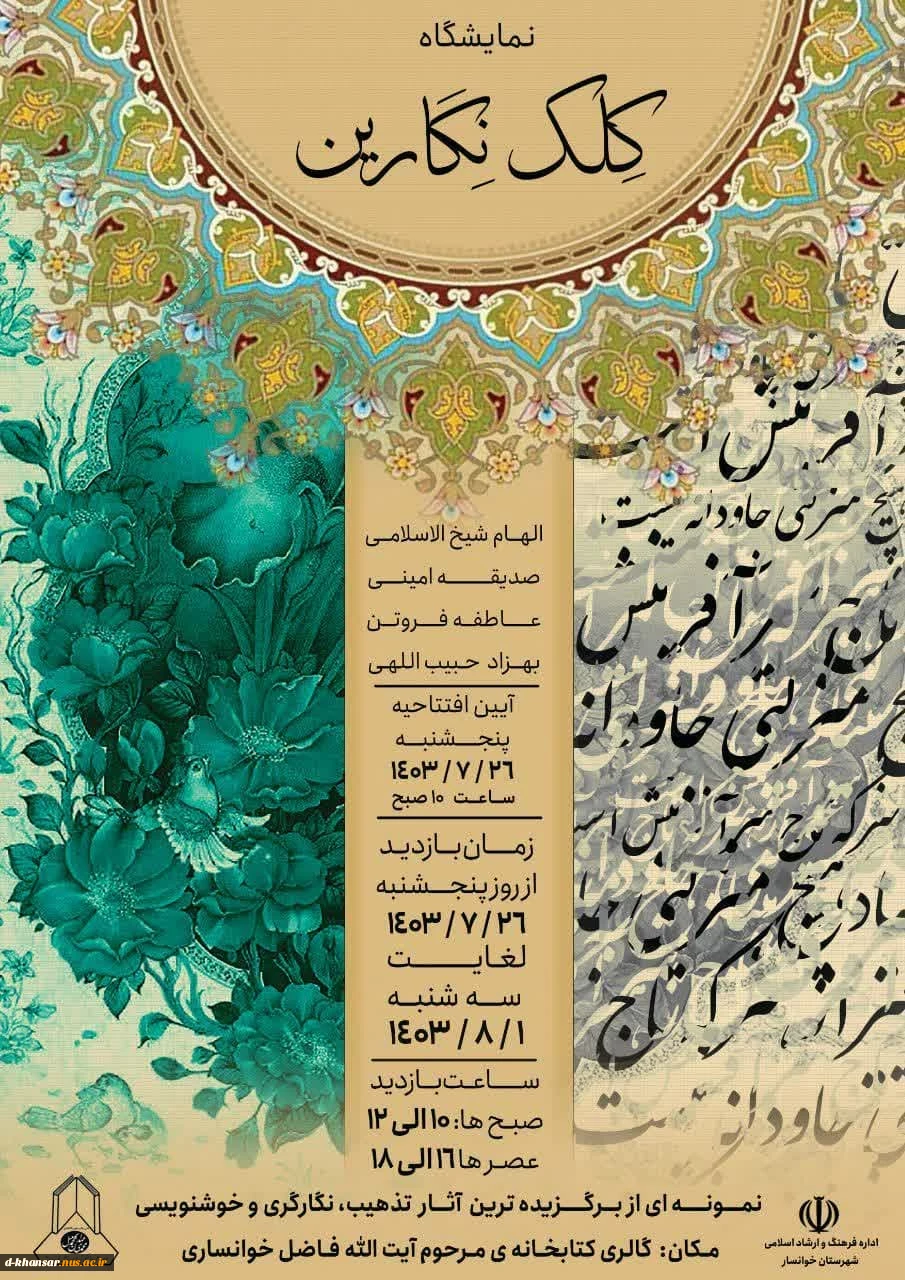 نمایشگاه
کلک نگارین
الهام شیخ الاسلامی
صدیقه امینی
عاطفه فروتن
بهزاد حبیب اللهی
آیین افتتاحیه
پنجشنبه
۱۴۰۳/۷/۲۶
ساعت ۱۰ صبح
زمان بازدید
از روز پنجشنبه
۱۴۰۳/۷/۲۶
لغایت
سه شنبه
۱۴۰۳/۸/۱
ساعت بازدید
صبح ها: ۱۰ الی ۱۲
عصرها ۱۶ الی ۱۸
آفرینش
هیچ منزلتی جاودانه نیست
آفرینش
منزلتی جاودانه
هیچ منزلتی
تاج
نمونه ای از برگزیده ترین آثار تذهیب، نگارگری و خوشنویسی
مکان: گالری کتابخانه ی مرحوم آیت الله فاضل خوانساری
اداره فرهنگ و ارشاد اسلامی
شهرستان خوانسار
d-khansar.nus.ac.ir